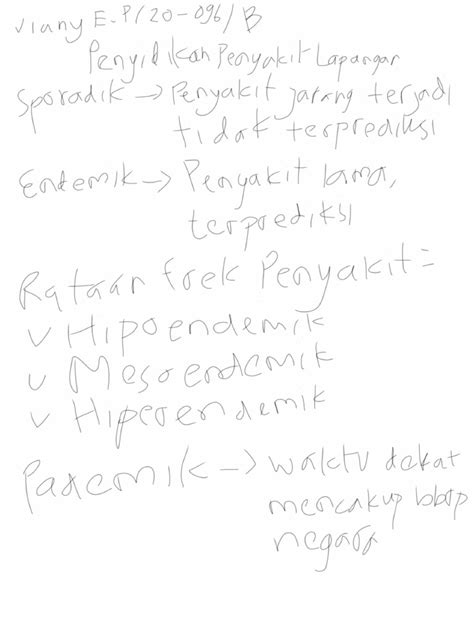 Viany E.P/20-096/B
Penyidikan Penyakit Lapangan
Sporadik → Penyakit jarang terjadi
tidak terprediksi
Endemik → Penyakit lama,
terprediksi
Rataan frek Penyakit =
v Hipoendemik
v Mesoendemik
v Hiperendemik
Pademik → waktu dekat
mencakup bbrp
negara